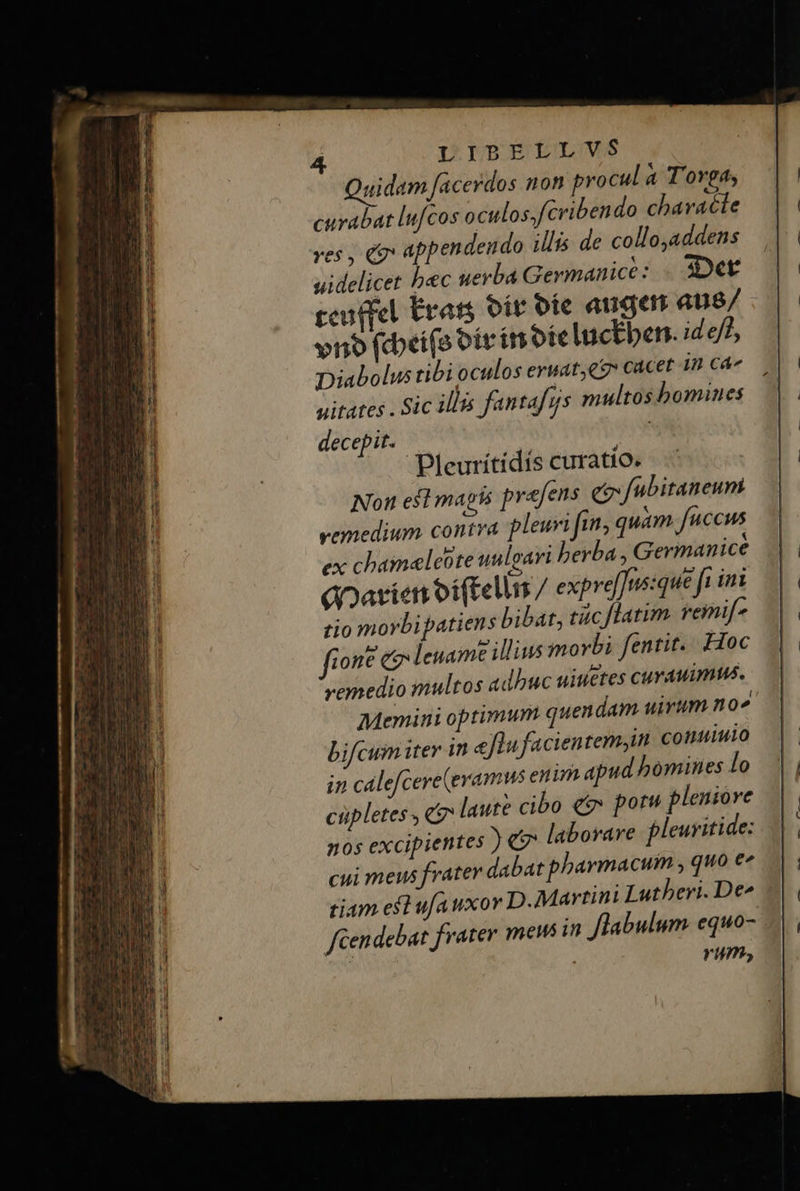 4 LIBELLVS
Quidam ſacerdos non procul à Torga,
curabat luſcos oculos, ſcribendo characte
res, & appendendo illis de collo, addens
uidelicet hæc uerba Germanicè: Der
teuffel kratz dir die augen aus/
vnd ſcheiſs dir in die luckhen. id eſt,
Diabolus tibi oculos eruat, & cacet in ca-
uitates. Sic illis fantaſijs multos homines
decepit.
Pleuritidis curatio.
Non eſt magis præſens & ſubitaneum
remedium contra pleuri ſin, quàm ſuccus
ex chamæleõte uulgari herba, Germanicè
Marien diſtelln / expreſſus: que ſi ini
tio morbi patiens bibat, tũc ſtatim remiſ-
ſionẽ & leuamẽ illius morbi ſentit. Hoc
remedio multos adhuc uiuẽtes curauimus.
Memini optimum quendam uirum no-
biſcum iter in æſtu facientem, in conuiuio
in caleſcere (eramus enim apud homines lo
cupletes, & lautè cibo & potu pleniore
nos excipientes) & laborare pleuritide:
cui meus frater dabat pharmacum, quo e-
tiam eſt uſa uxor D. Martini Lutheri. De-
ſcendebat frater meus in ſtabulum equo-
rum,